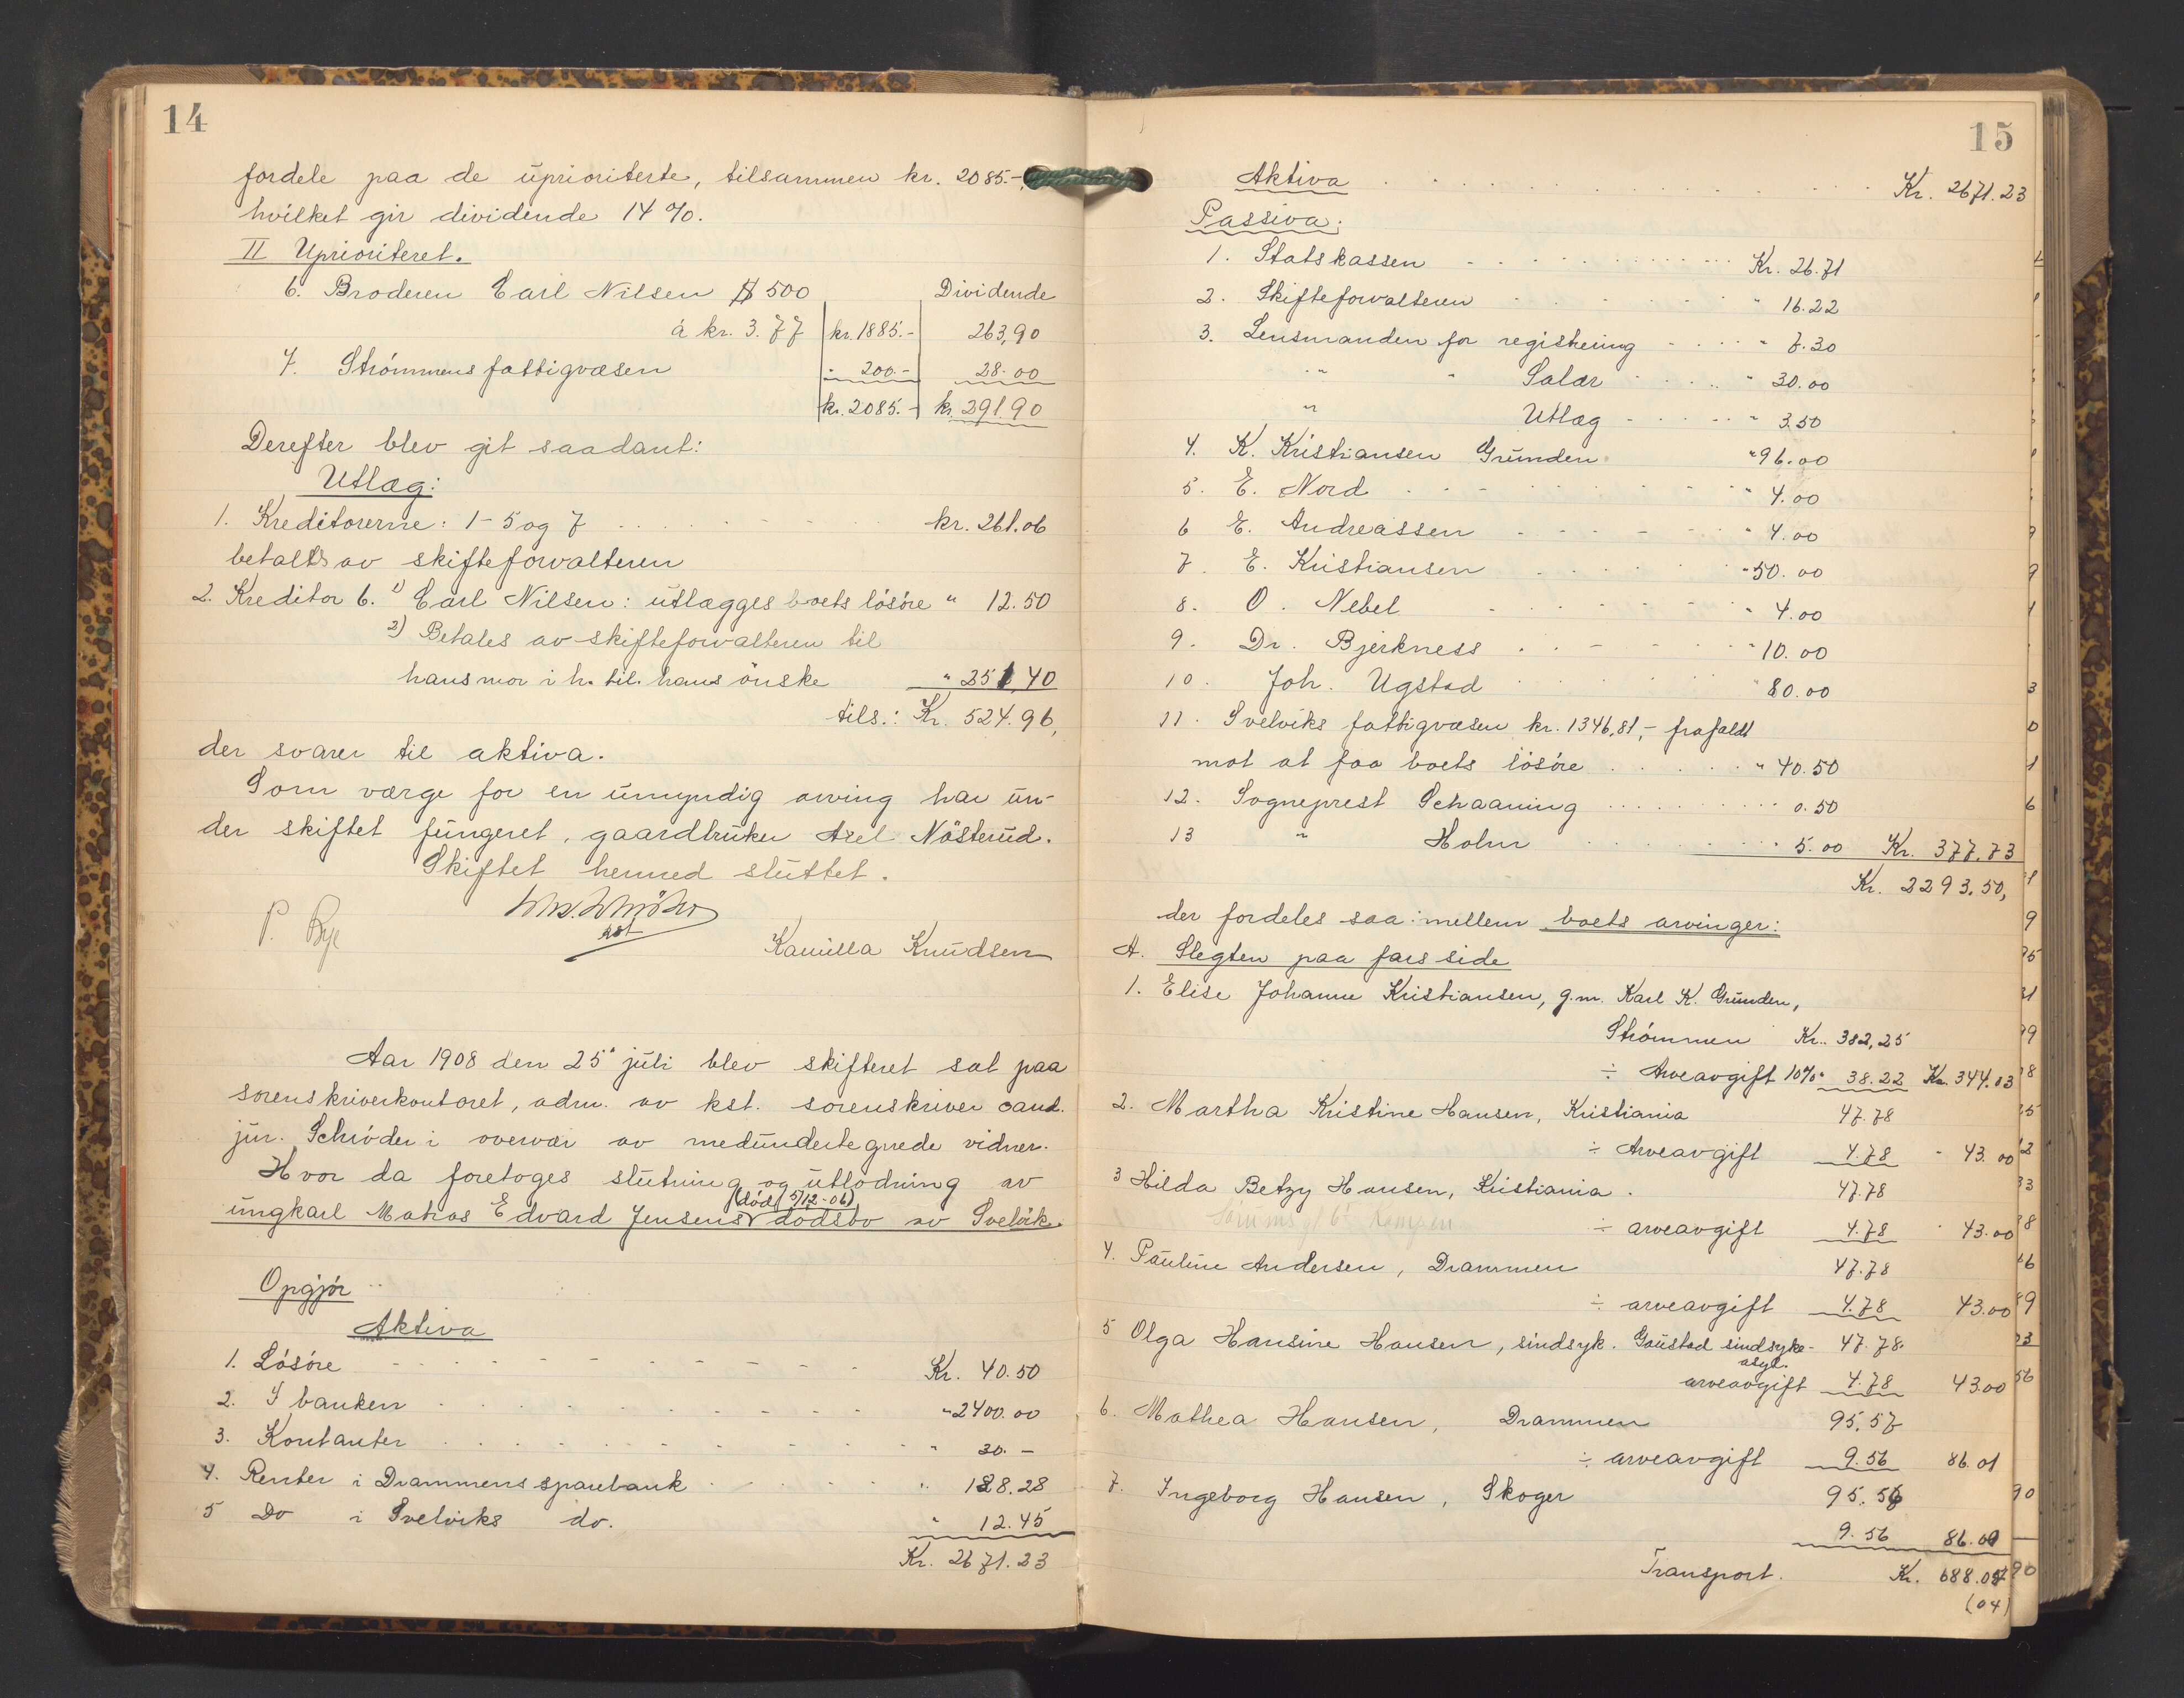 14
fordele paa de uprioriterte, tilsammen kr. 2085.-,
hvilket gir dividende 14 %.
II Uprioriteret.
6. Broderen Carl Nilsen $ 500 Dividende
á kr. 3.77 kr. 1885.- 263,90
7. Strömmens fattigvæsen " 200.- 28.00
kr. 2085.- kr. 291.90
Derefter blev git saadant:
Utlæg:
1. Kreditorerne: 1-5 og 7 kr. 261.06
betales av skifteforvalteren
2. Kreditor 6. 1) Carl Nilsen: utlægges boets lösöre " 12.50
2) Betales av skifteforvalteren til
hans mor i h. til. hans önske " 251,40
tils.: Kr. 524.96,
der svarer til aktiva.
Som værge for en umyndig arving har un-
der skiftet fungeret, gaardbruker Axel Nösterud.
Skiftet hermed sluttet.
kst
P. Bye
Kamilla Knudsen
Aar 1908 den 25' juli blev skifteret sat paa
sorenskriverkontoret, adm. av kst. sorenskriver cand.
jur. Schröder i overvær av medundertegnede vidner.
Hvor da foretoges slutning og utlodning av
(död 5/12-06)
ungkarl Matias Edvard Jensens dödsbo av Svelvik.
Opgjör
Aktiva
1. Lösöre Kr. 40.50
2. I banken " 2400.00
3. Kontanter " 30.-
4. Renter i Drammens sparebank " 188.28
5 Do i Svelviks do. " 12.45
Kr. 2671.23
15
Aktiva Kr. 2671.23
Passiva:
1. Statskassen Kr. 26.71
2. Skifteforvalteren " 16.22
3. Lensmanden for registrering " 7.30
" " Salær " 30.00
" Utlæg " 3.50
4. K. Kristiansen Grunden " 96.00
5. E. Nord " 4.00
6 E. Andreassen " 4.00
7. E. Kristiansen " 50.00
8. O. Nebel " 4.00
9. Dr. Bjerkness " 10.00
10. Joh. Ugstad " 80.00
11. Svelviks fattigvæsen kr. 1346,81,- frafaldt
mot at faa boets lösöre " 40.50
12. Sogneprest Schaaning 0.50
13 " Holm " 5.00 Kr. 377.73
Kr. 2293.50,
der fordeles saa: mellem boets arvinger:
A. Slegten paa fars side
1. Elise Johanne Kristiansen, g.m. Karl K. Grunden,
Strömmen Kr. 382,25
÷ Arveavgift 10% " 38.22 Kr. 344.03
2. Martha Kristine Hansen, Kristiania 47.78
÷ Arveavgift 4.78 " 43.00
3 Hilda Betzy Hansen, Kristiania. 47.78
÷ arveavgift 4.78 " 43.00
4. Pauline Andersen, Drammen 47.78
÷ arveavgift 4.78 43.00
5 Olga Hansine Hansen, sindsyk. Gaustad sindsyke- 47.78.
asyl.
arveavgift 4.78 43.00
6. Mathea Hansen, Drammen 95.57
÷ arveavgift 9.56 86.01
7. Ingeborg Hansen, Skoger 95.56
9.56 86.00
Transport. Kr. 688.04
(04)